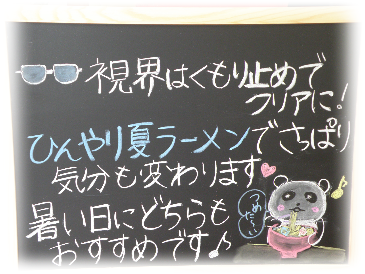 視界はくもり止めで
クリアに!
ひんやり夏ラーメンでさっぱり
気分も変わります
暑い日にどちらも
おすすめです♪
つめたーい